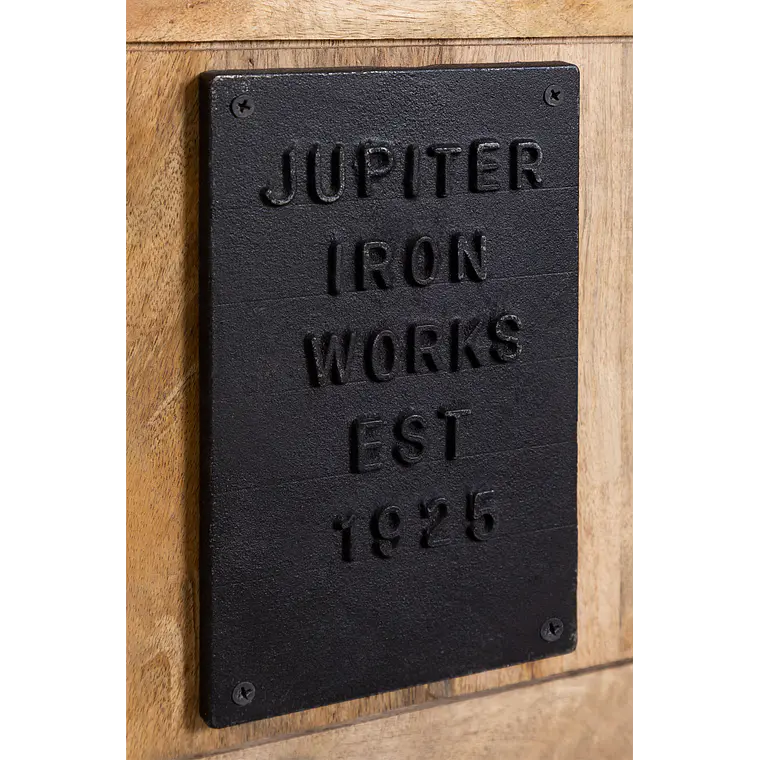 JUPITER
IRON
WORKS
EST
1925